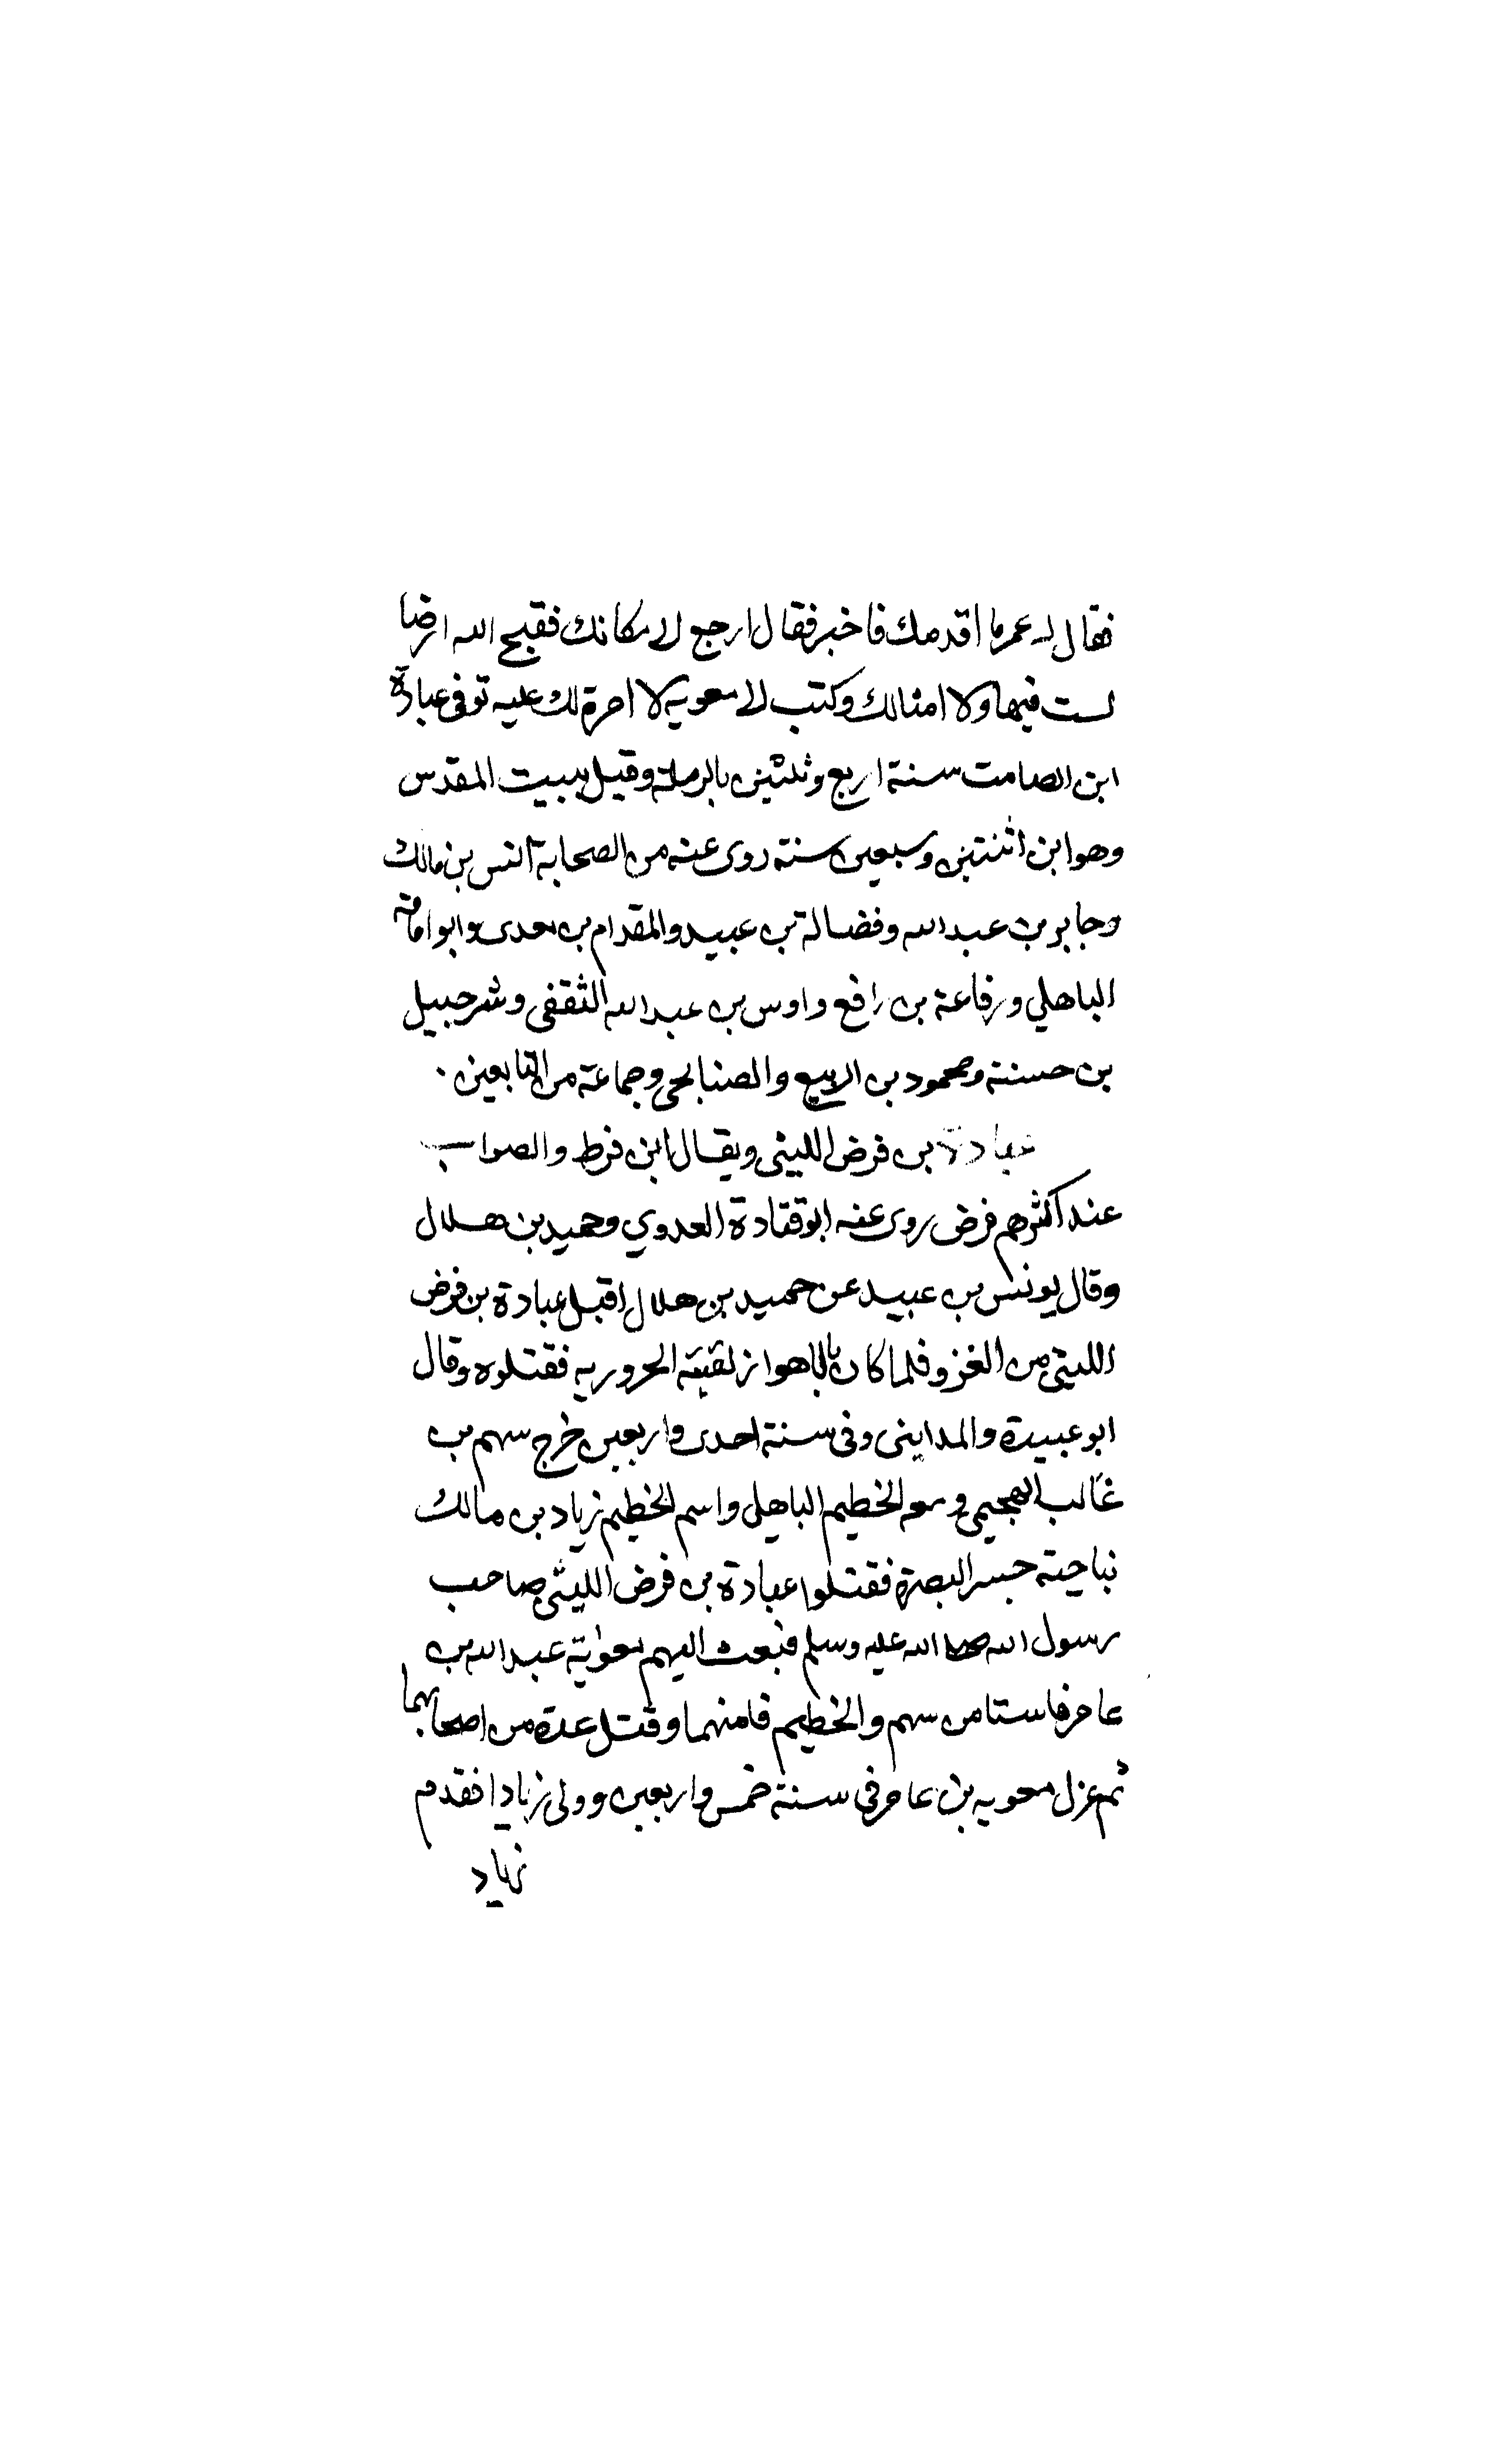 فقال له عمر ما اقدمك فاخبر فقال ارجع الى مكانك فقبح الله ارضا
لست فيها ولا امثالك وكتب الى معويه لا امرة لك عليه توفى عبادة
ابن الصامت سنة اربع وثلثين بالرملة وقيل ببيت المقدس
وهو ابن اثنتين وسبعين سنة روى عنه من الصحابة انس بن مالك
وجابر بن عبد الله وفضالة بن عبيد والمقدام بن معدى وابو امامة
الباهلي ورفاعة بن رافع واوس بن عبد الله الثقفى وشرحبيل
بن حسنة ومحمود بن الربيع والصنابحى وجماعة من التابعين .
عبادة بن قرض الليثى ويقال ابن قرط والصواب
عند اكثرهم قرض روى عنه ابو قتادة العدوي وحميد بن هلال
وقال يونس بن عبيد عن حميد بن هلال اقبل عبادة بن قرض
الليثى من الغزو فلما كان بالاهواز لقيته الحروريه فقتلوه وقال
ابو عبيدة والمداينى وفى سنة احدى واربعين خرج سهم بن
غالب الهجيمى ومعه الخطيم الباهلى واسم الخطيم زياد بن مالك
بناحية جسر البصرة فقتلوا عبادة بن قرض الليثى صاحب
رسول الله صلى الله عليه وسلم فبعث اليهم معوية عبد الله بن
عامر فاستامن سهم والخطيم فامنهما وقتل عدة من اصحابهما
ثم عزل معويه بن عامر فى سنة خمس واربعين وولى زيادا فقدم
زياد